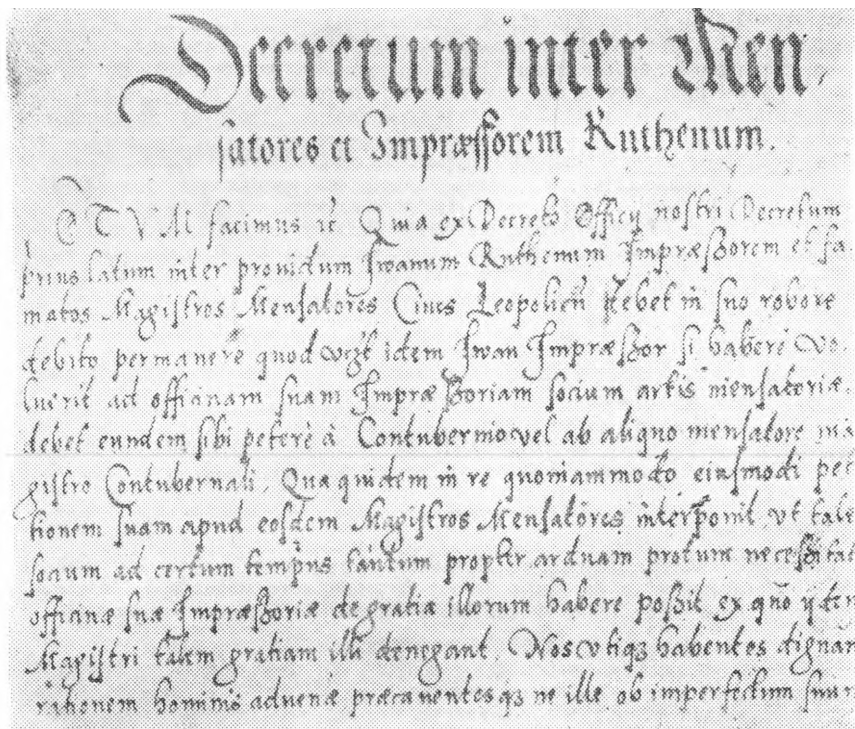 Decretum inter Men,
satores et Impræssorem Ruthenum.
NOTUM facimus Quia ex Decreto Officij nostri Decretum
prius latum inter providum Iwanum Ruthenum Impræszorem et fa,
matos Magistros Mensatores Cives Leopolien̄ debet in suo robore
debito permanere quod vczt idem Iwan Impræszor si habere vo,
luerit ad officinam suam Impræszoriam socium artis mensatoriæ,
debet eundem sibi petere à Contubernio vel ab aliquo mensatore ma
gistro Contubernali. Qua quidem in re quoniam modo eiusmodi pet
tionem suam apud eosdem Magistros Mensatores interponit vt tale
socium ad certum tempus tantum propter arduam necessitat
officinæ suæ Impræszoriæ de gratia illorum habere poszit ex quo ijdem
Magistri talem gratiam illi denegant. Nos vtiqз habentes dignam
rationem hominis advenæ præcaventesqз ne ille ob imperfectum suum